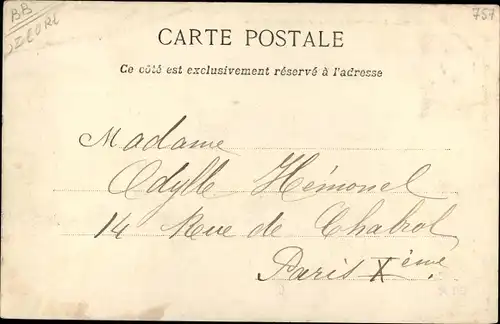 BB
757
CARTE POSTALE
Ce côté est exclusivement réservé à l'adresse
Madame
Odylle Hémonel
14 Rue de Chabrol
Paris Xème